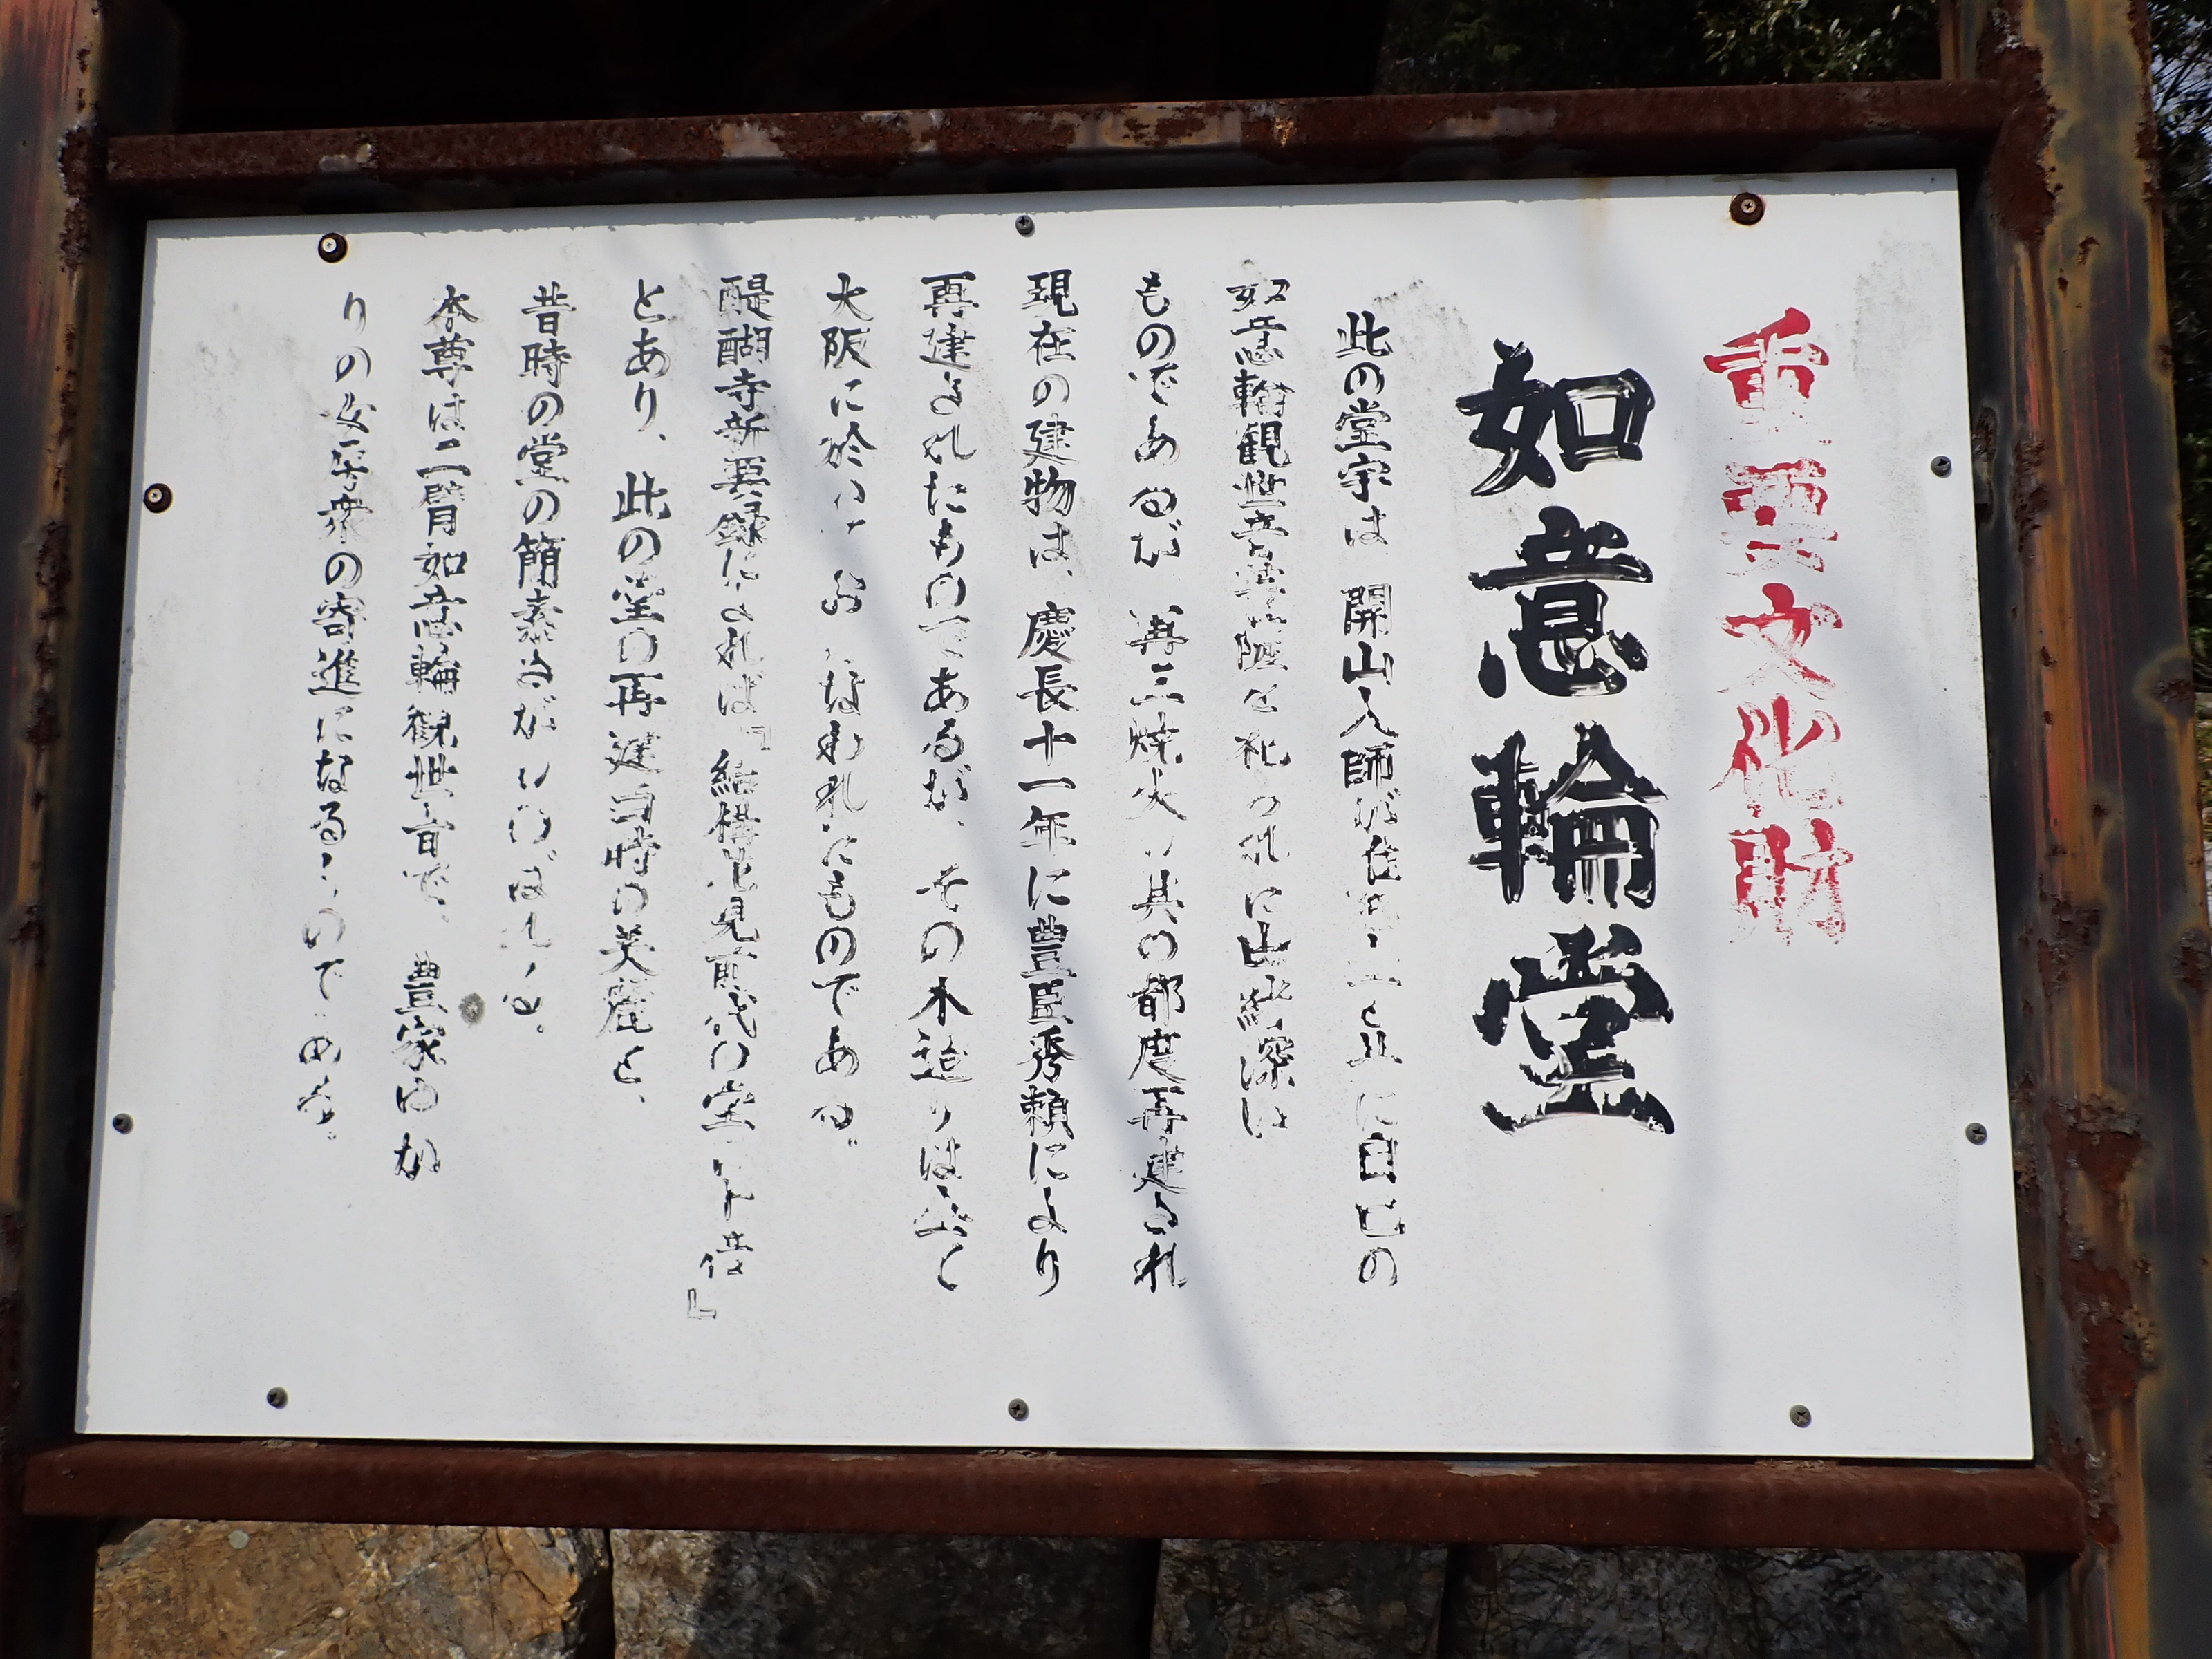 重要文化財
如意輪堂
此の堂宇は 開山大師が准胝 と共に自己の
如意輪観世音菩薩を祀られた由緒深い
ものであるが 再三焼失し其の都度再建され
現在の建物は、慶長十一年に豊臣秀頼により
再建されたものであるが、その木造りは遠く
大阪に於いて おこなわれたものである。
醍醐寺新要録によれば『結構花見前代の堂 十倍』
とあり、此の堂の再建当時の美麗と、
昔時の堂の簡素 が しのばれ る。
本尊は二臂如意輪観世音で、豊家ゆか
りの女房衆の寄進になるものである。